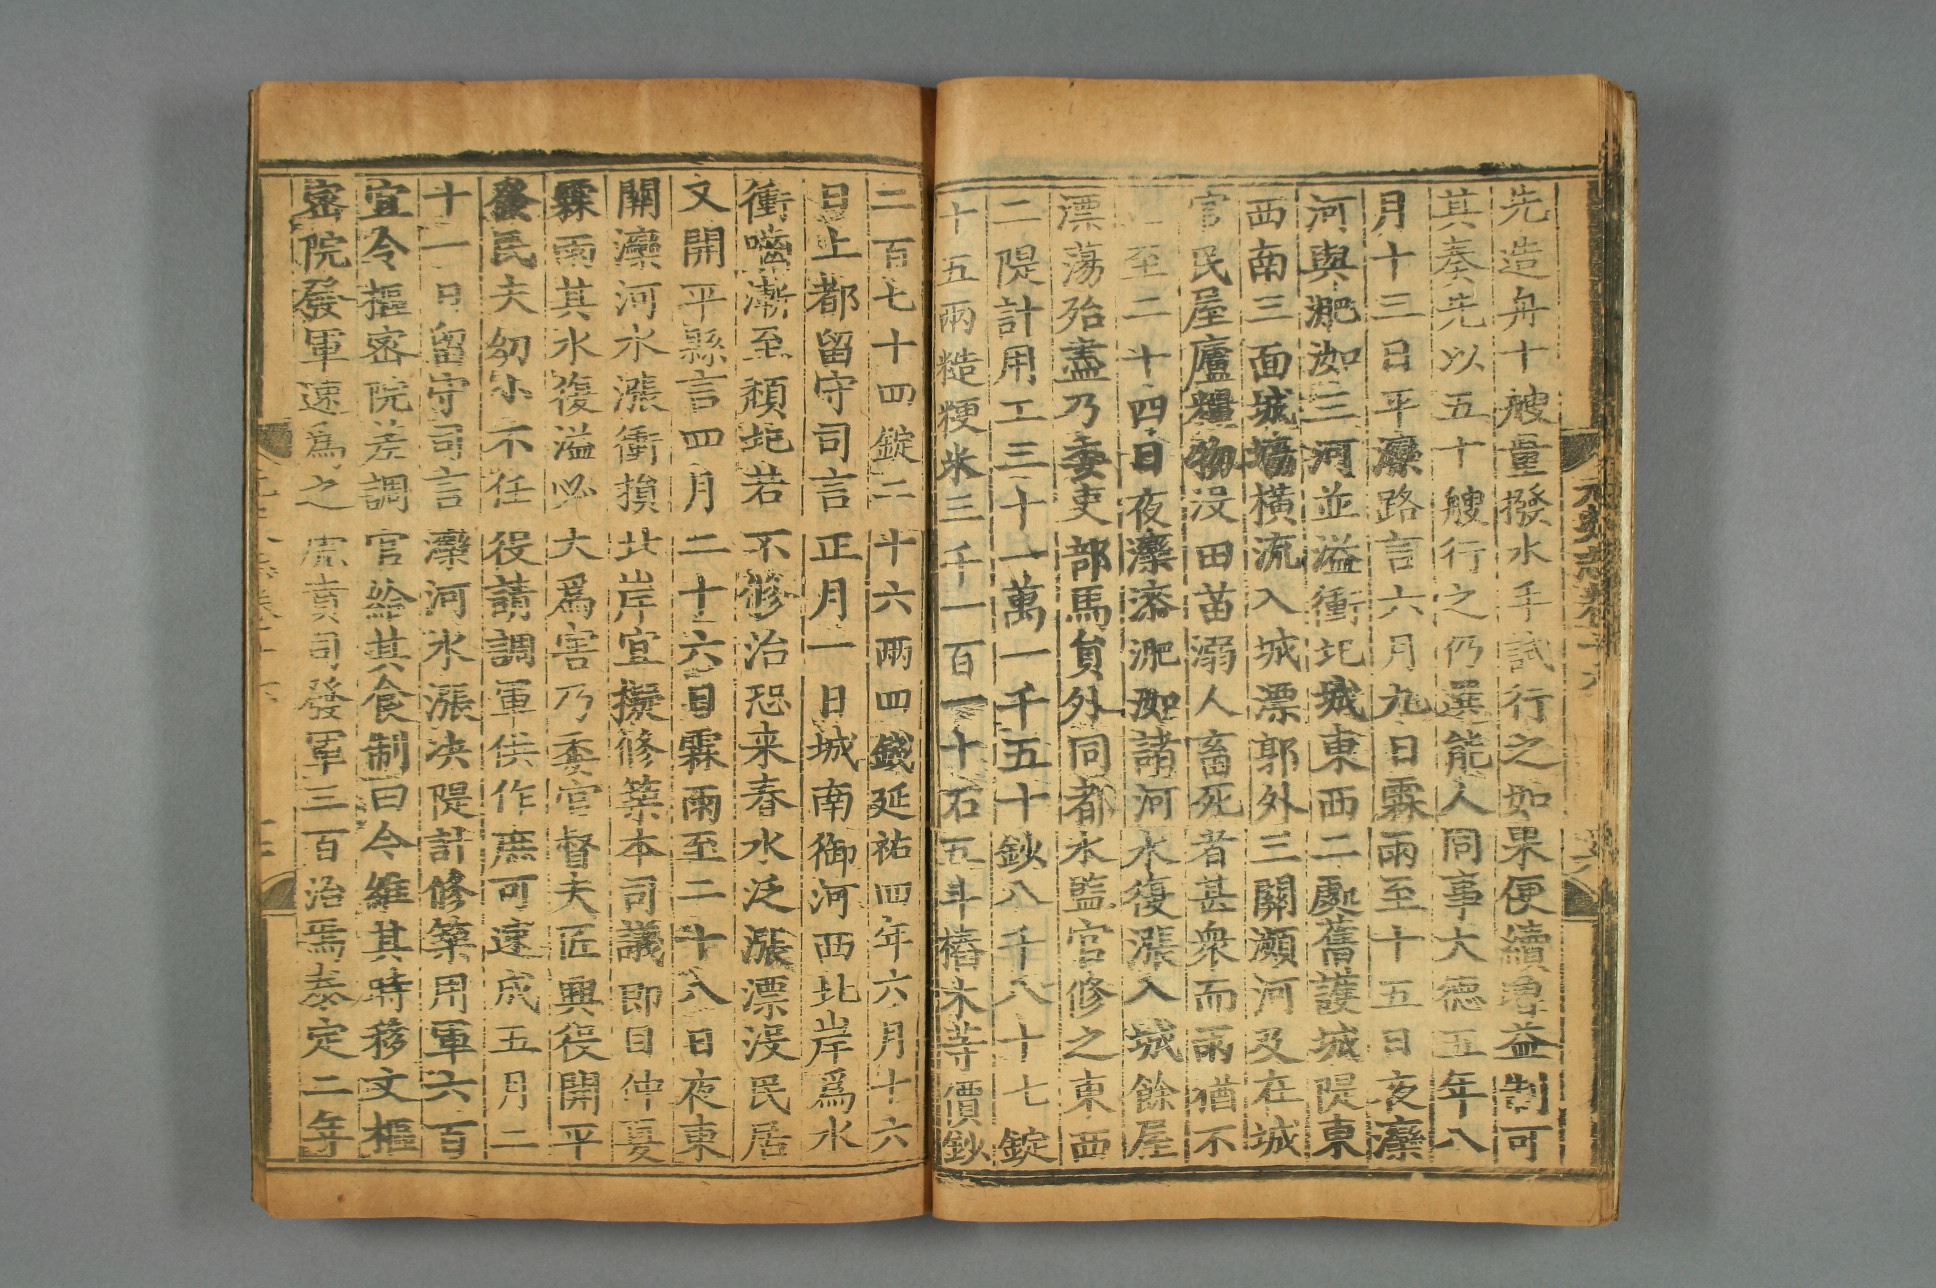 先造舟十艘量撥水手試行之如果便續增益制可
其奏先以五十艘行之仍選能人同事大德五年八
月十三日平灤路言六月九日霖雨至十五日夜灤
河與淝洳三河並溢衝圮城東西二處舊護城隄東
西南三面城墻橫流入城漂郭外三關瀕河及在城
官民屋廬糧物沒田苗溺人畜死者甚衆而雨猶不
止至二十四日夜灤漆淝洳諸河水復漲入城餘屋
漂蕩殆盡乃委吏部馬員外同都水監官修之東西
二隄計用工三十一萬一千五十鈔八千八十七錠
十五兩糙粳米三千一百一十石五斗樁木等價鈔
二百七十四錠二十六兩四錢延祐四年六月十六
日上都留守司言正月一日城南御河西北岸爲水
衝嚙漸至頹圮若不修治恐来春水泛漲漂沒民居
又開平縣言四月二十六日霖雨至二十八日夜東
關灤河水漲衝損北岸宜擬修築本司議即目仲夏
霖雨其水復溢必大爲害乃委官督夫匠興役開平
發民夫幼小不任役請調軍供作庶可速成五月二
十一日留守司言灤河水漲决隄計修築用軍六百
宜令樞密院差調官給其食制曰今維其時移文樞
密院發軍速爲之虎賁司發軍三百治焉泰定二年